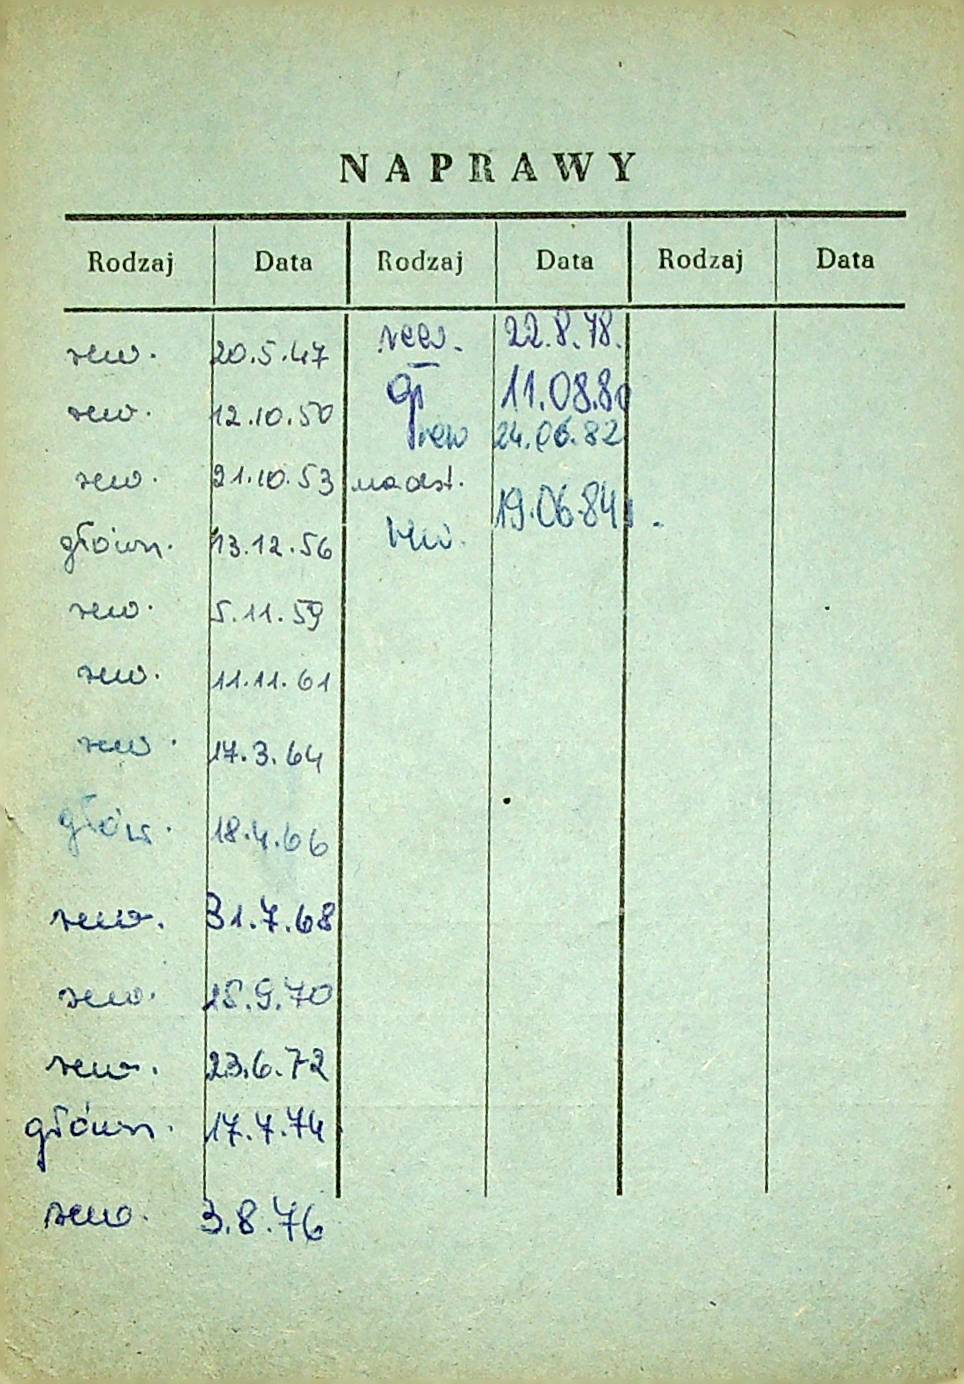 NAPRAWY
Rodzaj Data Rodzaj Data Rodzaj Data
rew. 20.5.47
rew. 12.10.50
rew. 21.10.53
główn. 13.12.56
rew. 5.11.59
rew. 11.11.61
rew. 17.3.64
główn. 18.4.66
rew. 31.7.68
rew. 15.9.70
rew. 23.6.72
główn. 17.7.74
rew. 3.8.76
rew. 22.8.78.
gł 11.08.80
rew 24.06.82
nadst.
rew. 19.06.84